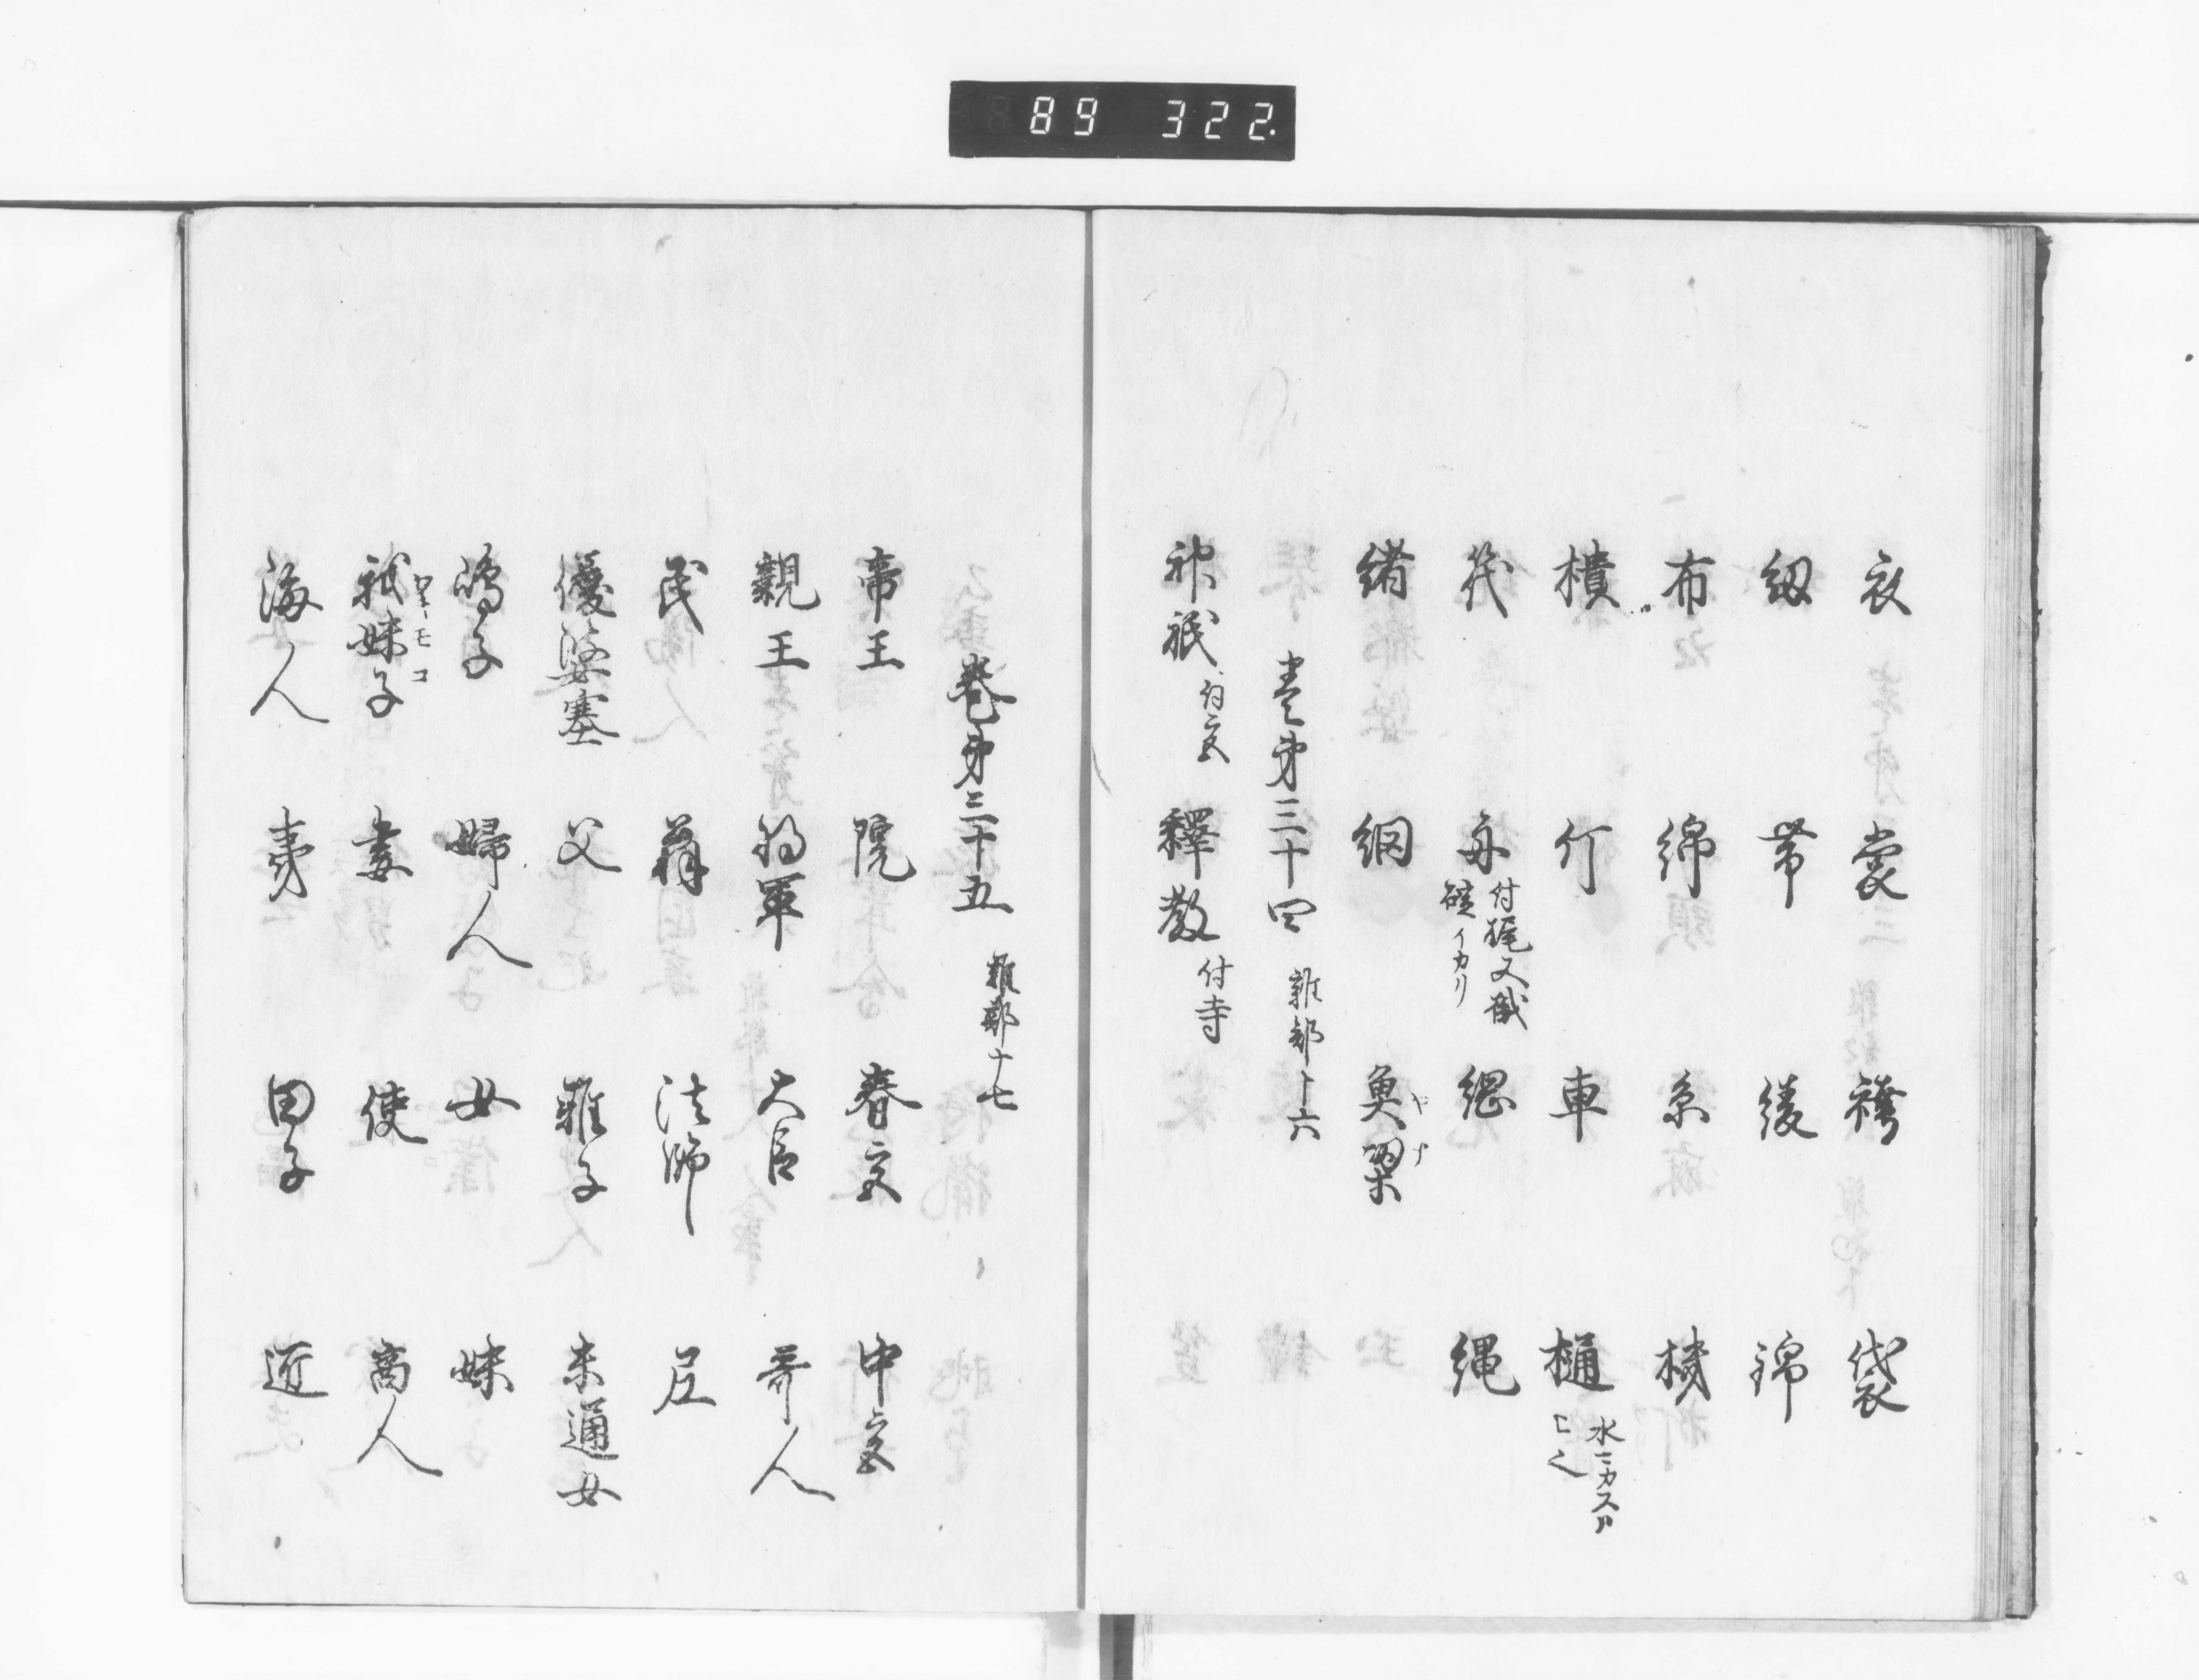 89 322.
衣 裳 袴 袋
紉 帯 綾 錦
布 綿 糸 機
樻 灯 車 樋 水ニカス
筏 舟 付梶又戕 碇イカリ 綱 縄
緒 網 魚梁 ヤナ
巻第三十四 雑部十六
神祇 付宮 釋教 付寺
巻第三十五 雑部十七
帝王 院 春宮 中宮
親王 将軍 大臣 哥人
民 法師 尼
優婆塞 父 稚子 未通女
嶋子 婦人 女 妹
我妹子 モコ 妻 使 商人
海人 田子